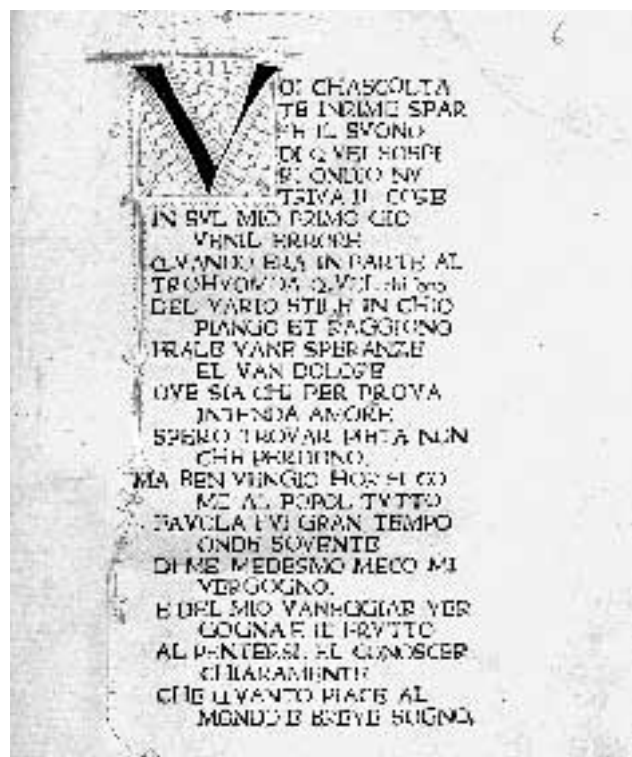 6
VOI CHASCOLTA
TE INRIME SPAR
SE IL SVONO
DI QVEI SOSPI
RI ONDIO NV
TRIVA IL CORE
IN SVL MIO PRIMO GIO
VENIL ERRORE
QVANDO ERA IN PARTE AL
TROHVOM DA QVEL
DEL VARIO STILE IN CHIO
PIANGO ET RAGGIONO
FRALE VANE SPERANZE
EL VAN DOLORE
OVE SIA CHI PER PROVA
INTENDA AMORE
SPERO TROVAR PIETA NON
CHE PERDONO.
MA BEN VEGGIO HOR SI CO
ME AL POPOL TVTTO
FAVOLA FVI GRAN TEMPO
ONDE SOVENTE
DI ME MEDESMO MECO MI
VERGOGNO.
E DEL MIO VANEGGIAR VER
GOGNA E IL FRVTTO
AL PENTERSI EL CONOSCER
CHIARAMENTE
CHE QVANTO PIACE AL
MONDO E BREVE SOGNO.